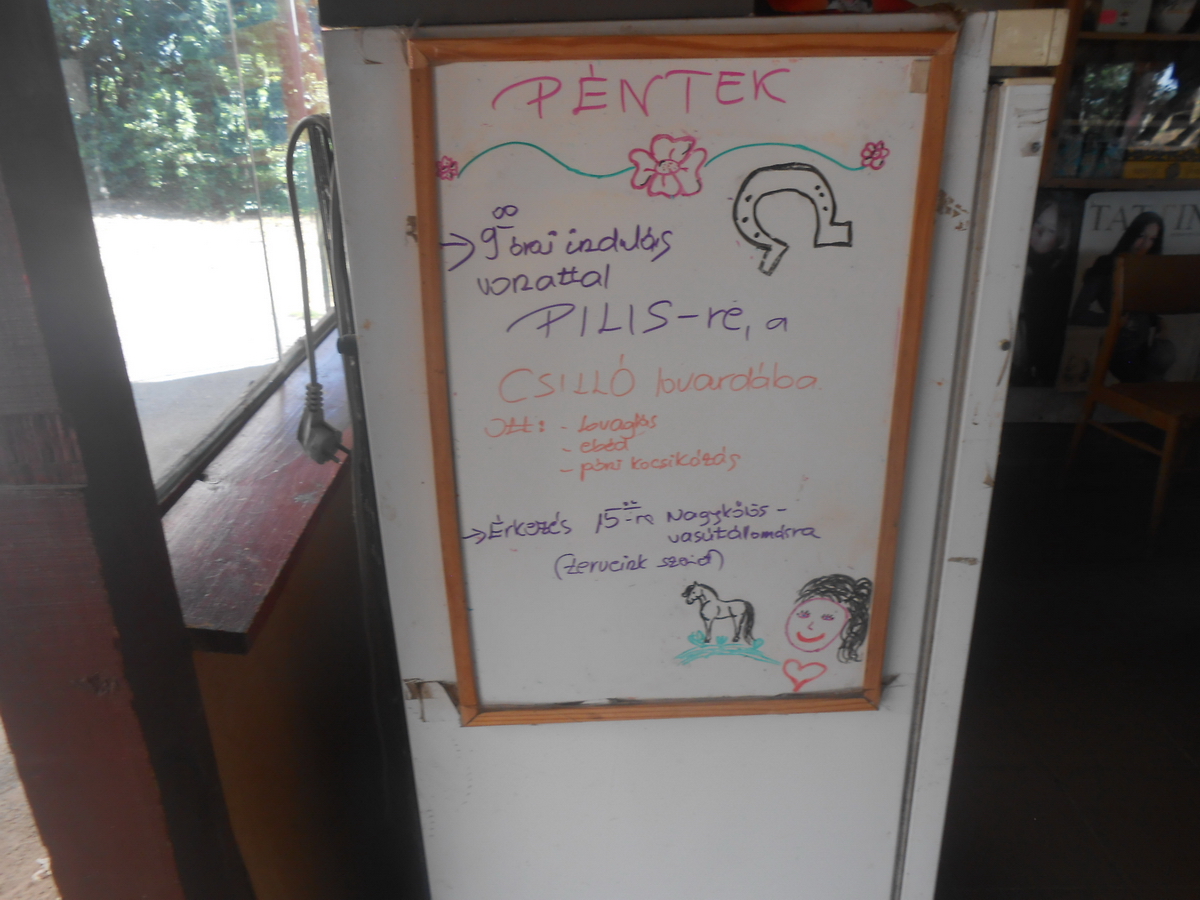 PÉNTEK
→ 9 00 órai indulás
vonattal
PILIS-re, a
CSILLÓ lovardába.
Ott: - lovaglás
- ebéd
- póni kocsikázás
→ Érkezés 15 00-re Nagykőrös-
vasútállomásra
(terveink szerint)
TATVIN